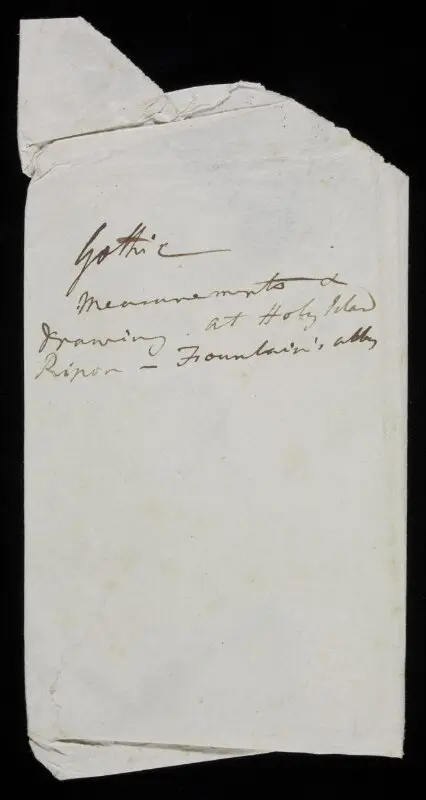 Gothic
Measurements &
drawing at Holy Island
Ripon - Fountain's abby